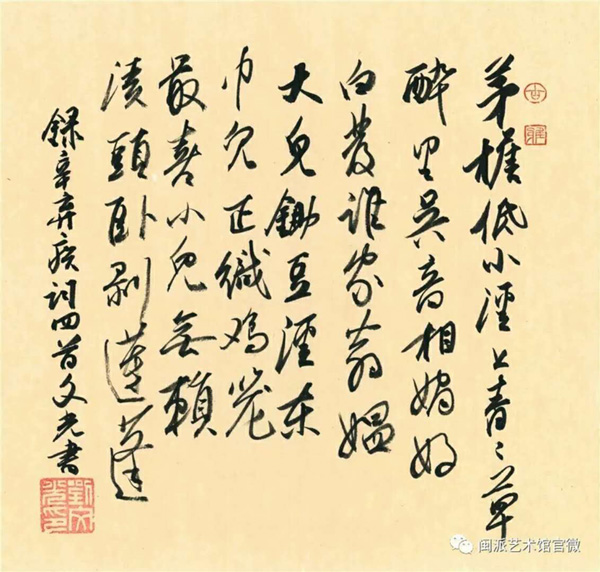 茅檐低小溪上青々草
醉里吴音相媚好
白发谁家翁媪
大兒鋤豆溪东
中兒正織鸡笼
最喜小兒無賴
溪頭卧剥蓮蓬
録辛弃疾词四首文光書
闽派艺术馆官微